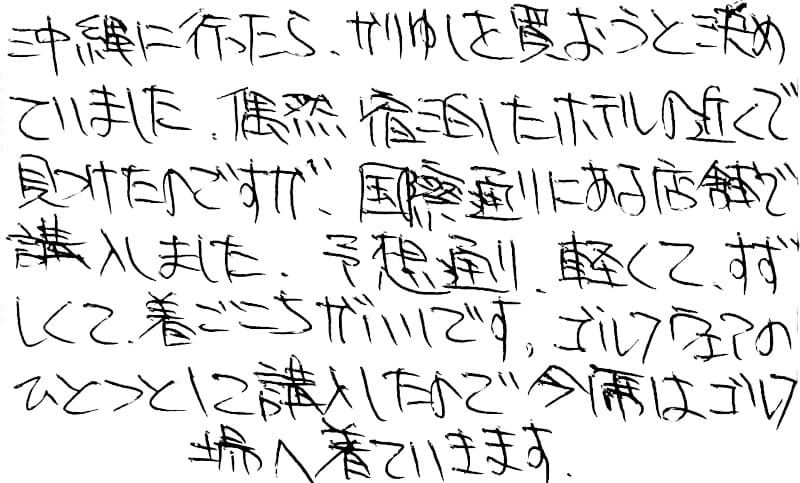 沖縄に行ったら、かりゆしを買おうと決め
ていました。偶然宿泊したホテルの近くで
見つけたのですが、国際通りにある店舗で
講入しました。予想通り、軽くて、すず
しくて、着ごこちがいいです。ゴルフウェアの
ひとつとして講入したので今度はゴルフ
場へ着ていきます。